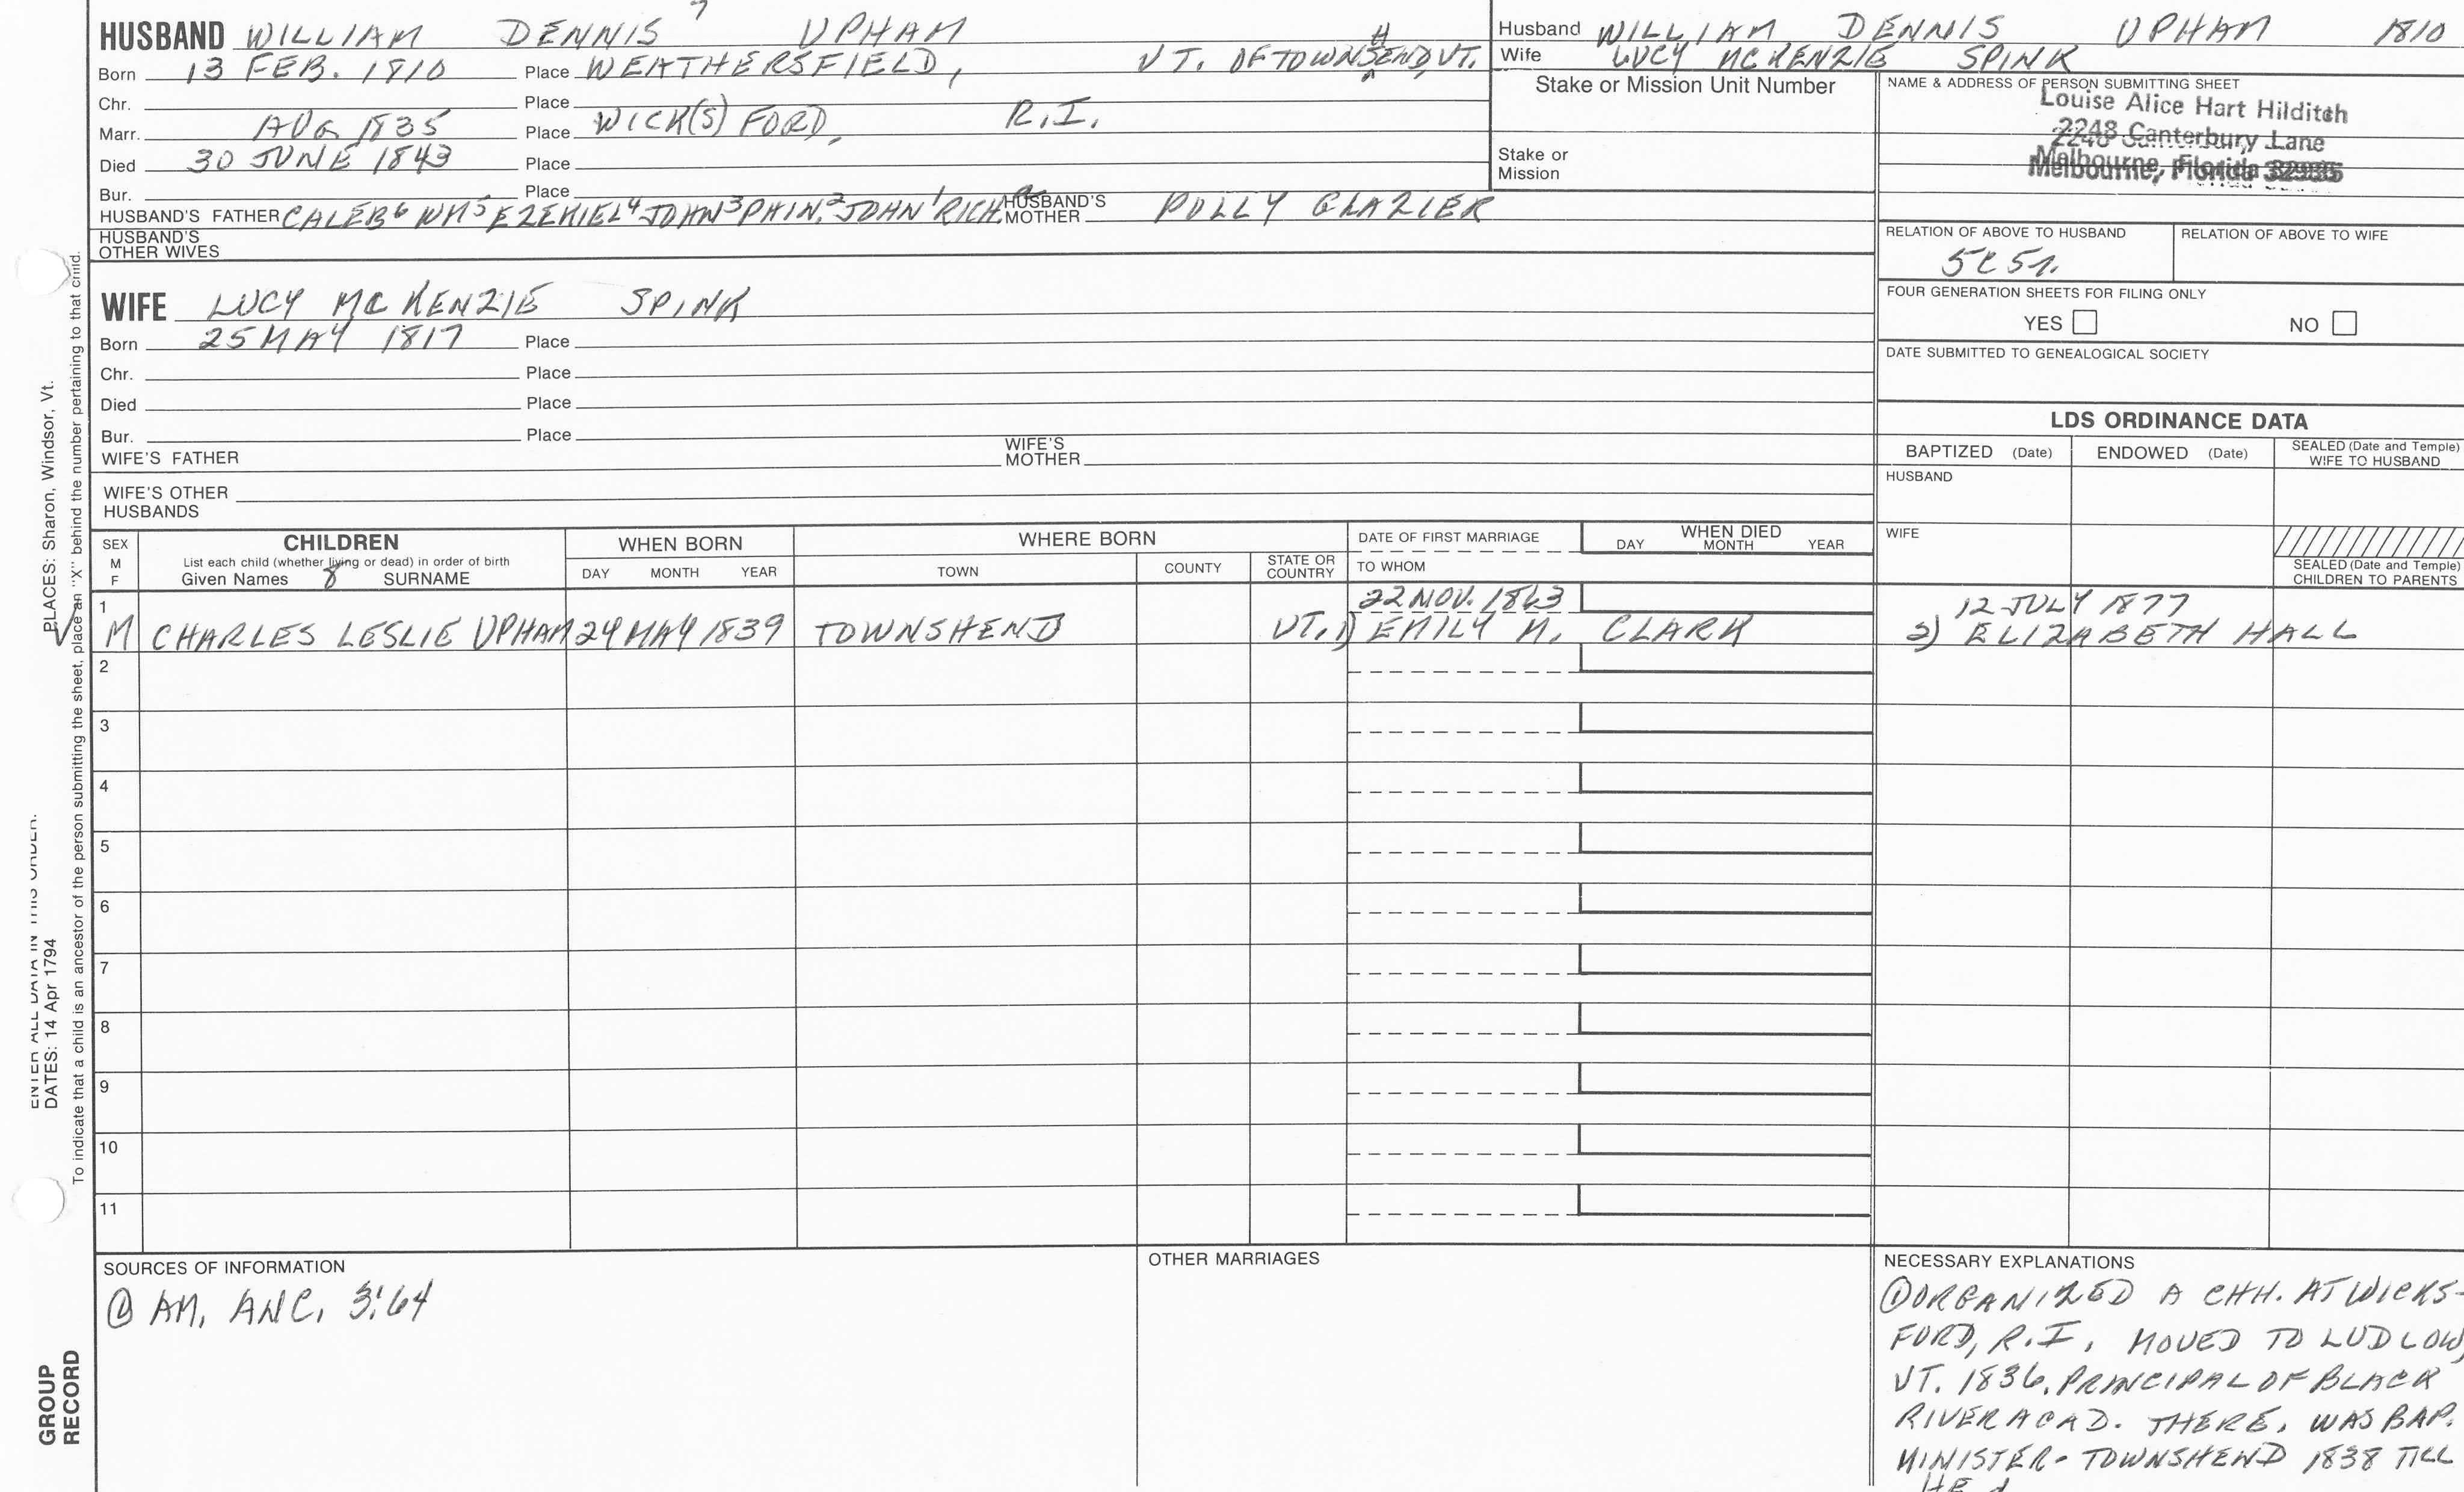 HUSBAND WILLIAM DENNIS 7 UPHAM
Born 13 FEB. 1810 Place WEATHERSFIELD, VT. OF TOWNSHEND, VT.
Chr. Place
Marr. AUG 1835 Place WICK(S)FORD, R.I.
Died 30 JUNE 1843 Place
Bur. Place
HUSBAND'S FATHER CALEB6 WM5 EZEKIEL4 JOHN3 PHIN.2 JOHN1 RICH. HUSBAND'S MOTHER POLLY GLAZIER
HUSBAND'S OTHER WIVES
Husband WILLIAM DENNIS UPHAM 1810
Wife LUCY MCKENZIE SPINK
Stake or Mission Unit Number
Stake or Mission
NAME & ADDRESS OF PERSON SUBMITTING SHEET
Louise Alice Hart Hilditch
2248 Canterbury Lane
Melbourne, Florida 32935
RELATION OF ABOVE TO HUSBAND
RELATION OF ABOVE TO WIFE
FOUR GENERATION SHEETS FOR FILING ONLY
YES NO
DATE SUBMITTED TO GENEALOGICAL SOCIETY
WIFE LUCY MCKENZIE SPINK
Born 25 MAY 1817 Place
Chr. Place
Died Place
Bur. Place
WIFE'S FATHER WIFE'S MOTHER
WIFE'S OTHER HUSBANDS
LDS ORDINANCE DATA
BAPTIZED (Date) ENDOWED (Date) SEALED (Date and Temple) WIFE TO HUSBAND
HUSBAND
WIFE
SEALED (Date and Temple) CHILDREN TO PARENTS
SEX M F
CHILDREN
List each child (whether living or dead) in order of birth
Given Names 8 SURNAME
WHEN BORN
DAY MONTH YEAR
WHERE BORN
TOWN COUNTY STATE OR COUNTRY
DATE OF FIRST MARRIAGE
TO WHOM
WHEN DIED
DAY MONTH YEAR
1 22 NOV. 1863 12 JULY 1877
M CHARLES LESLIE UPHAM 24 MAY 1839 TOWNSHEND VT. 1) EMILY M. CLARK 2) ELIZABETH HALL
2
3
4
5
6
7
8
9
10
11
SOURCES OF INFORMATION
① AM. ANC. 3:64
OTHER MARRIAGES
NECESSARY EXPLANATIONS
① ORGANIZED A CHH. AT WICKS-
FORD, R.I. MOVED TO LUDLOW,
VT. 1836. PRINCIPAL OF BLACK
RIVER ACAD. THERE. WAS BAP.
MINISTER - TOWNSHEND 1838 TILL
HE d
PLACES: Sharon, Windsor, Vt.
ENTER ALL DATA IN THIS ORDER:
DATES: 14 Apr 1794
To indicate that a child is an ancestor of the person submitting the sheet, place an "X" behind the number pertaining to that child.
GROUP RECORD